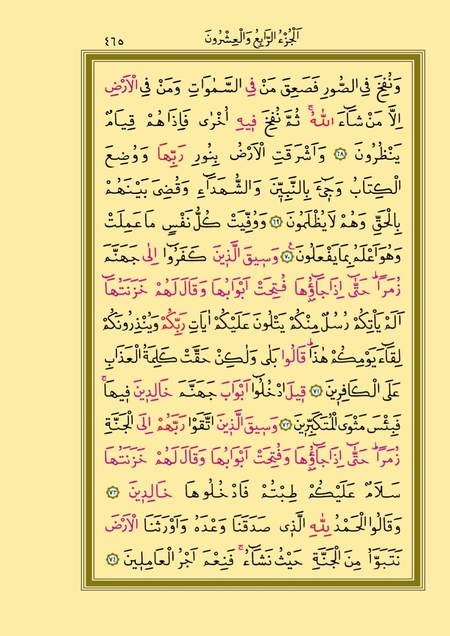 اَلْجُزْءُ الرَّابِعُ وَالْعِشْرُونَ
٤٦٥
وَنُفِخَ فِى الصُّورِ فَصَعِقَ مَنْ فِى السَّمٰوَاتِ وَمَنْ فِى الْاَرْضِ
اِلَّا مَنْ شَٓاءَ اللّٰهُۜ ثُمَّ نُفِخَ ف۪يهِ اُخْرٰى فَاِذَا هُمْ قِيَامٌ
يَنْظُرُونَ ﴿٦٨﴾ وَاَشْرَقَتِ الْاَرْضُ بِنُورِ رَبِّهَا وَوُضِعَ
الْكِتَابُ وَج۪ٓيءَ بِالنَّبِيّ۪نَ وَالشُّهَدَٓاءِ وَقُضِىَ بَيْنَهُمْ
بِالْحَقِّ وَهُمْ لَا يُظْلَمُونَ ﴿٦٩﴾ وَوُفِّيَتْ كُلُّ نَفْسٍ مَا عَمِلَتْ
وَهُوَ اَعْلَمُ بِمَا يَفْعَلُونَ۟ ﴿٧٠﴾ وَس۪يقَ الَّذ۪ينَ كَفَرُٓوا اِلٰى جَهَنَّمَ
زُمَرًاۜ حَتّٰٓى اِذَا جَٓاؤُ۫هَا فُتِحَتْ اَبْوَابُهَا وَقَالَ لَهُمْ خَزَنَتُهَٓا
اَلَمْ يَأْتِكُمْ رُسُلٌ مِنْكُمْ يَتْلُونَ عَلَيْكُمْ اٰيَاتِ رَبِّكُمْ وَيُنْذِرُونَكُمْ
لِقَٓاءَ يَوْمِكُمْ هٰذَاۜ قَالُوا بَلٰى وَلٰكِنْ حَقَّتْ كَلِمَةُ الْعَذَابِ
عَلَى الْكَافِر۪ينَ ﴿٧١﴾ ق۪يلَ ادْخُلُٓوا اَبْوَابَ جَهَنَّمَ خَالِد۪ينَ ف۪يهَاۚ
فَبِئْسَ مَثْوَى الْمُتَكَبِّر۪ينَ ﴿٧٢﴾ وَس۪يقَ الَّذ۪ينَ اتَّقَوْا رَبَّهُمْ اِلَى الْجَنَّةِ
زُمَرًاۜ حَتّٰٓى اِذَا جَٓاؤُ۫هَا وَفُتِحَتْ اَبْوَابُهَا وَقَالَ لَهُمْ خَزَنَتُهَا
سَلَامٌ عَلَيْكُمْ طِبْتُمْ فَادْخُلُوهَا خَالِد۪ينَ ﴿٧٣﴾
وَقَالُوا الْحَمْدُ لِلّٰهِ الَّذ۪ى صَدَقَنَا وَعْدَهُ وَاَوْرَثَنَا الْاَرْضَ
نَتَبَوَّاُ مِنَ الْجَنَّةِ حَيْثُ نَشَٓاءُۚ فَنِعْمَ اَجْرُ الْعَامِل۪ينَ ﴿٧٤﴾